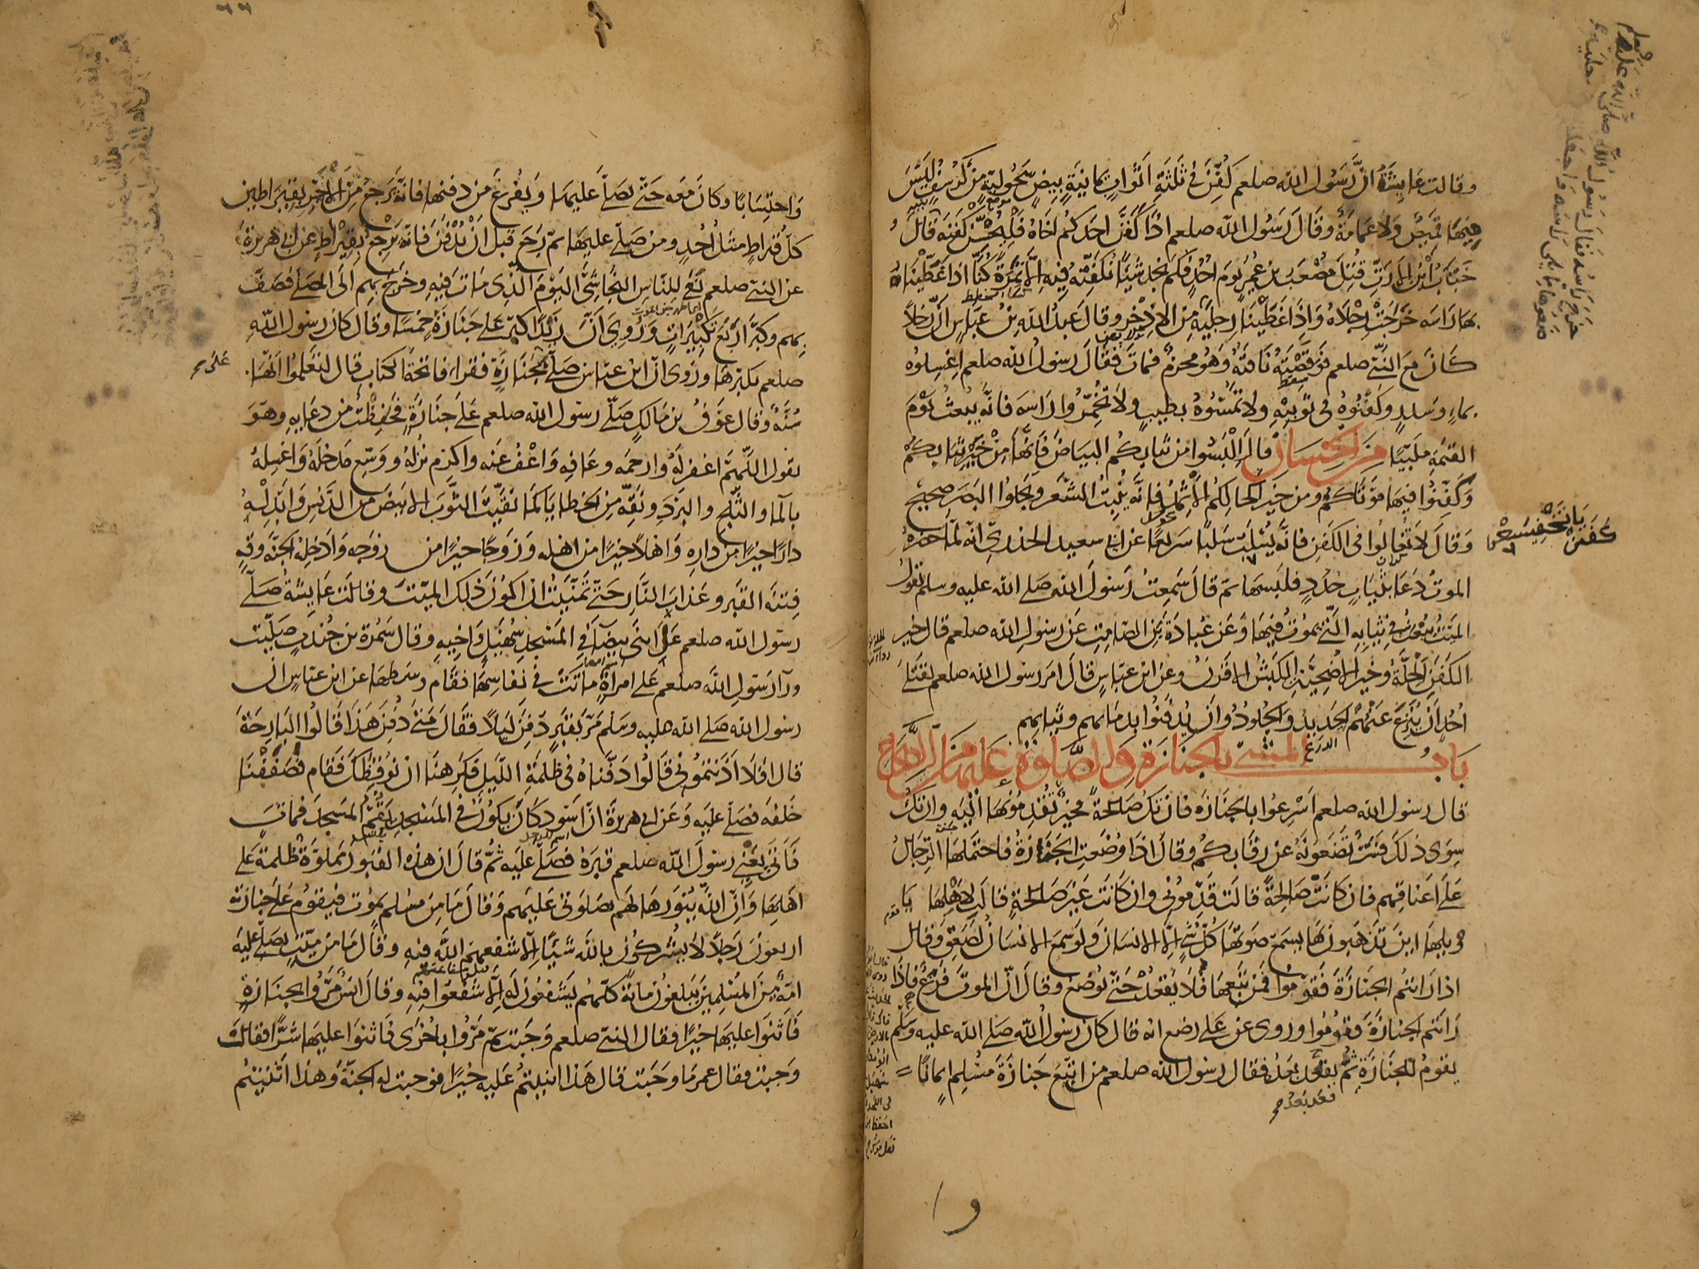 وقالت عايشة ان رسول الله صلعم كفن في ثلثة اثواب يمانية بيض سحولية من كرسف ليس
فيها قميص ولا عمامة وقال رسول الله صلعم اذا كفن احدكم اخاه فليحسن كفنه قال
خباب بن الارت قتل مصعب بن عمير يوم احد فلم نجد شيئا نكفنه فيه الا نمرة كنا اذا غطينا
بها راسه خرجت رجلاه واذا غطينا رجليه من الاذخر وقال عبد الله بن عباس ان رجلا
كان مع النبي صلعم فوقصته ناقته وهو محرم فمات فقال رسول الله صلعم اغسلوه
بماء وسدر وكفنوه في ثوبيه ولا تمسوه بطيب ولا تخمروا راسه فانه يبعث يوم
القيمة ملبيا من الحسان قال البسوا من ثيابكم البياض فانها من خير ثيابكم
وكفنوا فيها موتاكم ومن خير اكحالكم الاثمد فانه ينبت الشعر ويجلوا البصر صحيح
وقال لا تغالوا في الكفن فانه يسلب سلبا سريعا عن ابي سعيد الخدري انه لما حضره
الموت دعا بثياب جدد فلبسها ثم قال سمعت رسول الله صلى الله عليه وسلم يقول
الميت يبعث في ثيابه التي يموت فيها وعن عبادة بن الصامت عن رسول الله صلعم قال خير
الكفن الحلة وخير الاضحية الكبش الاقرن وعن ابن عباس قال امر رسول الله صلعم بقتلى
احد ان ينزع عنهم الحديد والجلود وان يدفنوا بدمائهم وثيابهم
باب المشي بالجنازة والصلوة عليها من الصحاح
قال رسول الله صلعم اسرعوا بالجنازة فان تك صالحة فخير تقدمونها اليه وان تك
سوى ذلك فشر تضعونه عن رقابكم وقال اذا وضعت الجنازة فاحتملها الرجال
على اعناقهم فان كانت صالحة قالت قدموني وان كانت غير صالحة قالت لاهلها يا
ويلها اين تذهبون بها يسمع صوتها كل شي الا الانسان ولو سمع الانسان لصعق وقال
اذا رايتم الجنازة فقوموا فمن تبعها فلا يقعد حتى توضع وقال ان الموت فزع فاذا
رايتم الجنازة فقوموا وروى عن علي رضع انه قال كان رسول الله صلى الله عليه وسلم
يقوم للجنازة ثم يقعد بعد فقال رسول الله صلعم من اتبع جنازة مسلم ايمانا
واحتسابا وكان معه حتى يصلى عليها ويفرغ من دفنها فانه يرجع من الاجر بقيراطين
كل قيراط مثل احد ومن صلى عليها ثم رجع قبل ان تدفن فانه يرجع بقيراط عن ابي هريرة
عن النبي صلعم نعى للناس النجاشي اليوم الذي مات فيه وخرج بهم الى المصلى فصف
بهم وكبر اربع تكبيرات وروي ان زيدا كبر على جنازة خمسا وقال كان رسول الله
صلعم يكبرها وروى ان ابن عباس صلى على جنازة فقراء فاتحة الكتاب قال لتعلموا انها
سنة وقال عوف بن مالك صلى رسول الله صلعم على جنازة فحفظت من دعايه وهو
يقول اللهم اغفر له وارحمه وعافه واعف عنه واكرم نزله ووسع مدخله واغسله
بالماء والثلج والبرد ونقه من الخطايا كما نقيت الثوب الابيض من الدنس وابدله
دارا خيرا من داره واهلا خيرا من اهله وزوجا خيرا من زوجه وادخله الجنة وقه
فتنة القبر وعذاب النار حتى تمنيت ان اكون ذلك الميت وقالت عايشة صلى
رسول الله صلعم على ابني بيضاء في المسجد سهيل واخيه وقال سمرة بن جندب صليت
وراء رسول الله صلعم على امراة ماتت في نفاسها فقام وسطها عن ابن عباس ان
رسول الله صلى الله عليه وسلم مر بقبر دفن ليلا فقال متى دفن هذا قالوا البارحة
قال افلا اذنتموني قالوا دفناه في ظلمة الليل فكرهنا ان نوقظك فقام فصففنا
خلفه فصلى عليه وعن ابي هريرة ان اسود كان يكون في المسجد يقم المسجد فمات
فاتى يعني رسول الله صلعم قبره فصلى عليه ثم قال ان هذه القبور مملوة ظلمة على
اهلها وان الله ينورها لهم بصلوتي عليهم وقال ما من مسلم يموت فيقوم على جنازته
اربعون رجلا لا يشركون بالله شيئا الا شفعهم الله فيه وقال ما من ميت يصلي عليه
امة من المسلمين يبلغون مائة كلهم يشفعون له الا شفعوا فيه وقال انس مروا بجنازة
فاثنوا عليها خيرا فقال النبي صلعم وجبت ثم مروا باخرى فاثنوا عليها شرا فقال
وجبت فقال عمر ما وجبت قال هذا اثنيتم عليه خيرا فوجبت له الجنة وهذا اثنيتم